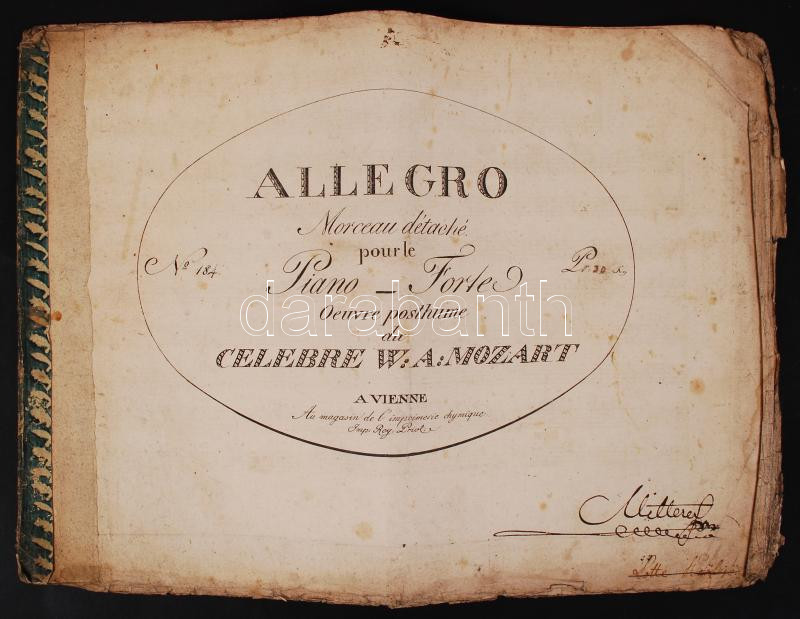 ALLEGRO
Morceau détaché
pour le
Nº 184. Piano _ Forte Pr. 30 x.
Oeuvre posthume
du
CELEBRE W: A: MOZART
A VIENNE
Au magasin de l'imprimerie chymique
Imp. Roy. Priv.
darabanth